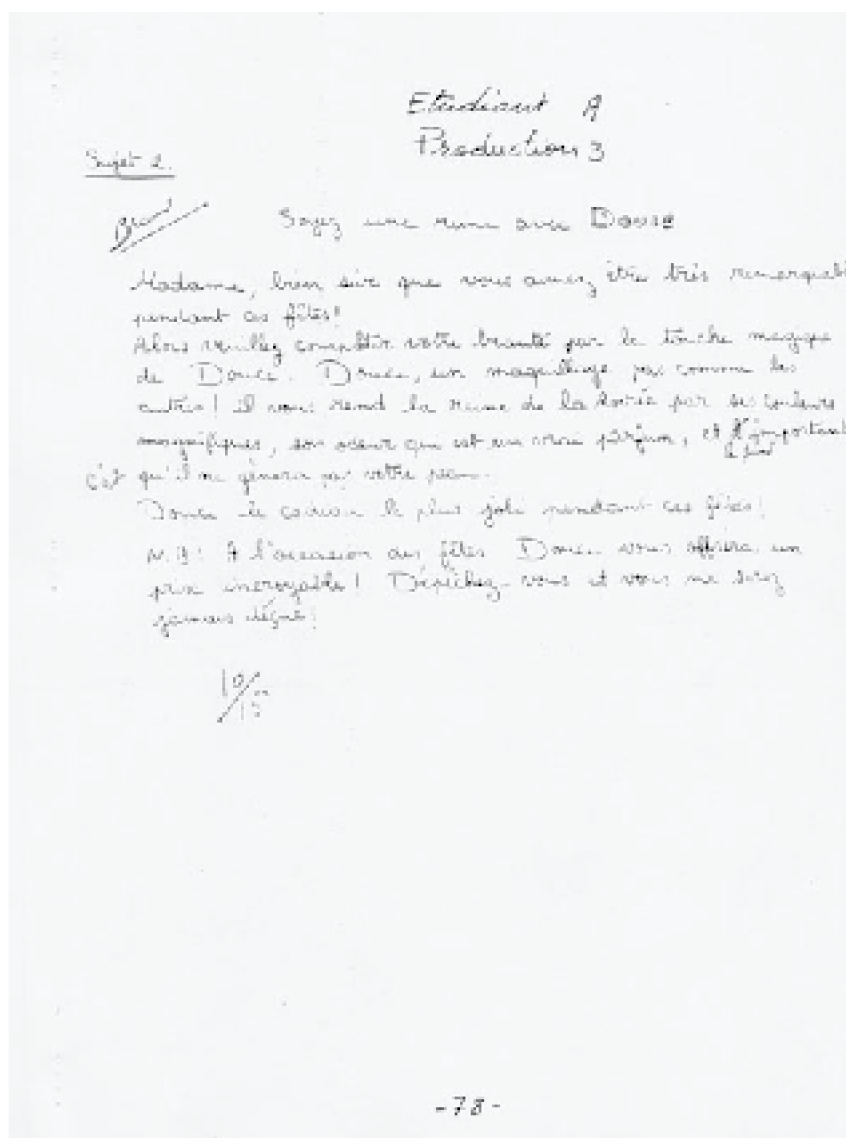 Etudiant A
Production 3
Sujet 2.
Bravo
Soyez une reine avec Douce
Madame, bien sûr que vous aimez être très remarquabl
pendant ces fêtes!
Alors veuillez compléter votre beauté par la touche magique
de Douce. Douce, un maquillage pas comme les
autres! il vous rend la reine de la soirée par ses couleurs
magnifiques, son odeur qui est un vrai parfum, et l'important
le plus
c'est qu'il ne gênera pas votre peau.
Douce le cadeau le plus joli pendant ces fêtes!
N.B: A l'occasion des fêtes Douce vous offrira un
prix incroyable! Dépêchez-vous et vous ne serez
jamais déçue!
10/15
-78-